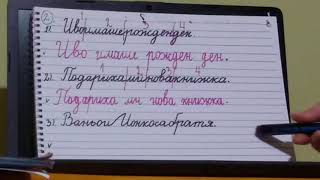 2.
1). Ивоимашерожденден.
Иво имаше рожден ден.
2). Подарихаминовакнижка.
Подариха ми нова книжка.
3). ВаньоиЙонкосабратя.